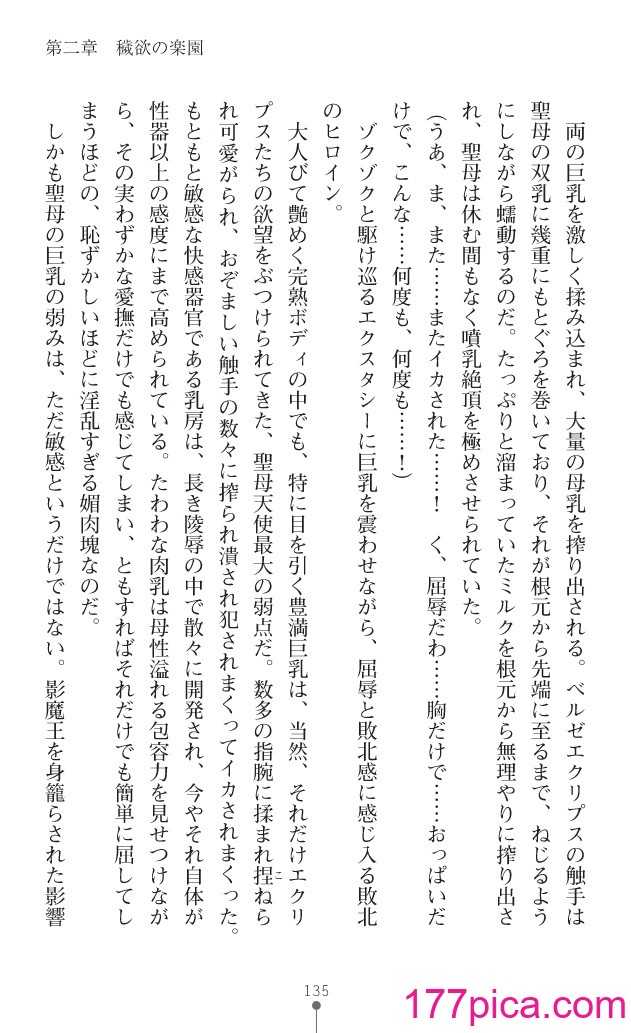 第二章　穢欲の楽園
　両の巨乳を激しく揉み込まれ、大量の母乳を搾り出される。ベルゼエクリプスの触手は
聖母の双乳に幾重にもとぐろを巻いており、それが根元から先端に至るまで、ねじるよう
にしながら蠕動するのだ。たっぷりと溜まっていたミルクを根元から無理やりに搾り出さ
れ、聖母は休む間もなく噴乳絶頂を極めさせられていた。
（うあ、ま、また……またイカされた……！　く、屈辱だわ……胸だけで……おっぱいだ
けで、こんな……何度も、何度も……！）
　ゾクゾクと駆け巡るエクスタシーに巨乳を震わせながら、屈辱と敗北感に感じ入る敗北
のヒロイン。
　大人びて艶めく完熟ボディの中でも、特に目を引く豊満巨乳は、当然、それだけエクリ
プスたちの欲望をぶつけられてきた、聖母天使最大の弱点だ。数多の指腕に揉まれ捏ねら
こ
れ可愛がられ、おぞましい触手の数々に搾られ潰され犯されまくってイカされまくった。
もともと敏感な快感器官である乳房は、長き陵辱の中で散々に開発され、今やそれ自体が
性器以上の感度にまで高められている。たわわな肉乳は母性溢れる包容力を見せつけなが
ら、その実わずかな愛撫だけでも感じてしまい、ともすればそれだけでも簡単に屈してし
まうほどの、恥ずかしいほどに淫乱すぎる媚肉塊なのだ。
　しかも聖母の巨乳の弱みは、ただ敏感というだけではない。影魔王を身籠らされた影響
135
177pica.com